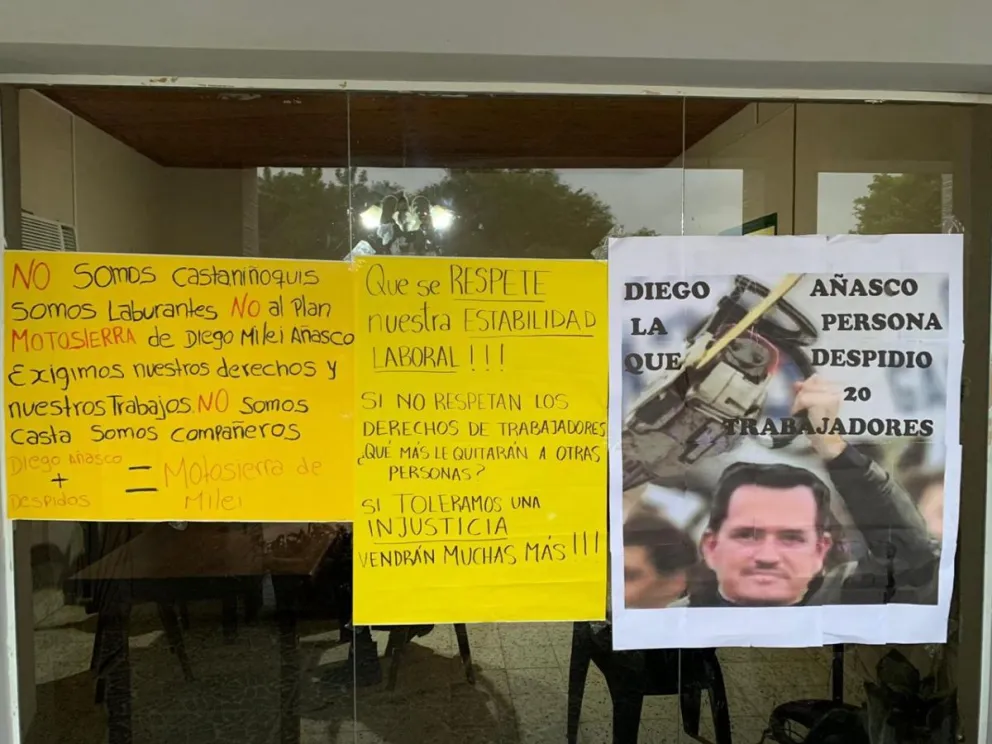 NO Somos Castaniñoquis
Somos Laburantes NO al Plan
MOTOSIERRA de Diego Milei Añasco
Exigimos nuestros derechos y
nuestros Trabajos. NO Somos
Casta Somos Compañeros
Diego Añasco
+
Despidos
= Motosierra de
Milei
Que se RESPETE
nuestra ESTABILIDAD
LABORAL!!!
SI NO RESPETAN LOS
DERECHOS DE TRABAJADORES
¿QUÉ MÁS LE QUITARÁN A OTRAS
PERSONAS?
SI TOLERAMOS UNA
INJUSTICIA
VENDRÁN MUCHAS MÁS!!!
DIEGO AÑASCO
LA PERSONA
QUE DESPIDIO
20
TRABAJADORES